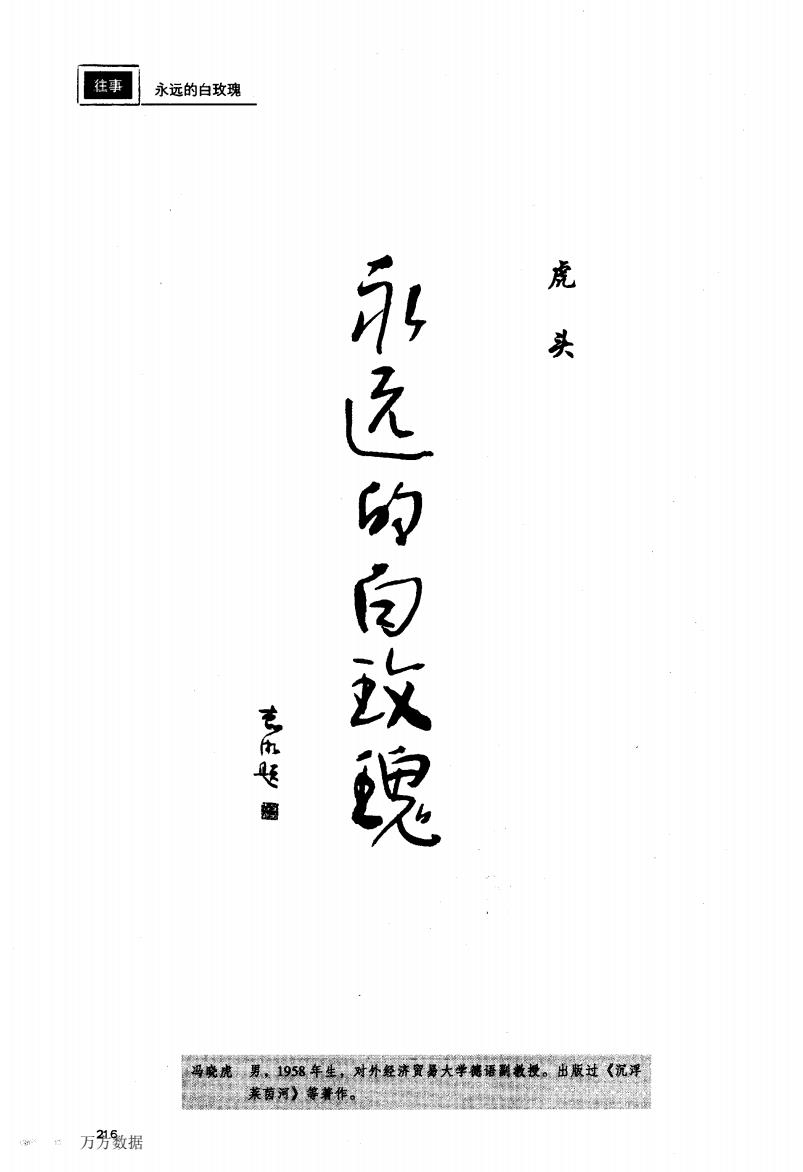 往事
永远的白玫瑰
虎头
永远的白玫瑰
冯晓虎 男，1958年生，对外经济贸易大学德语副教授。出版过《沉浮
莱茵河》等著作。
216
万方数据